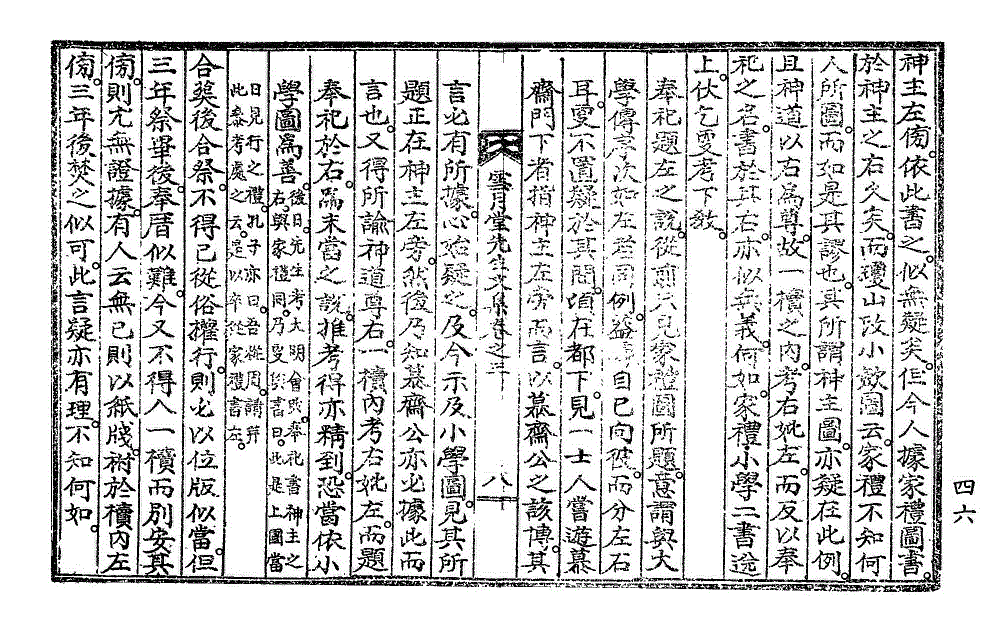 神主左傍。依此書之。似無疑矣。但今人據家禮圖書。
於神主之右久矣。而瓊山改小歛圖云。家禮不知何
人所圖。而如是其謬也。其所謂神主圖。亦疑在此例。
且神道以右爲尊。故一櫝之內。考右妣左。而反以奉
祀之名。書於其右。亦似無義。何如。家禮,小學二書送
上。伏乞更考下敎。
奉祀題左之說。從前只見家禮圖所題。意謂與大
學傳序次如左若同例。蓋以自己向彼。而分左右
耳。更不置疑於其間。頃在都下。見一士人嘗遊慕
齋門下者。指神主左旁而言。以慕齋公之該博。其
雪月堂先生文集卷之三 八
言必有所據。心始疑之。及今示及小學圖。見其所
題正在神主左旁。然後乃知慕齋公亦必據此而
言也。又得所諭神道尊右。一櫝內考右妣左。而題
奉祀於右。爲未當之說。推考得亦精到。恐當依小
學圖爲善。後日。先生考大明會典。奉祀書神主之
右。與家禮同。乃更貽書曰。此是上國當
日見行之禮。孔子亦曰。吾從周。請幷
此參考處之云。是以卒從家禮書左。
合葬後合祭。不得已從俗權行。則必以位版似當。但
三年祭畢後。奉厝似難。今又不得入一櫝而別安其
傍。則尤無證據。有人云無已則以紙牋祔於櫝內左
傍。三年後焚之似可。此言疑亦有理。不知何如。
四六